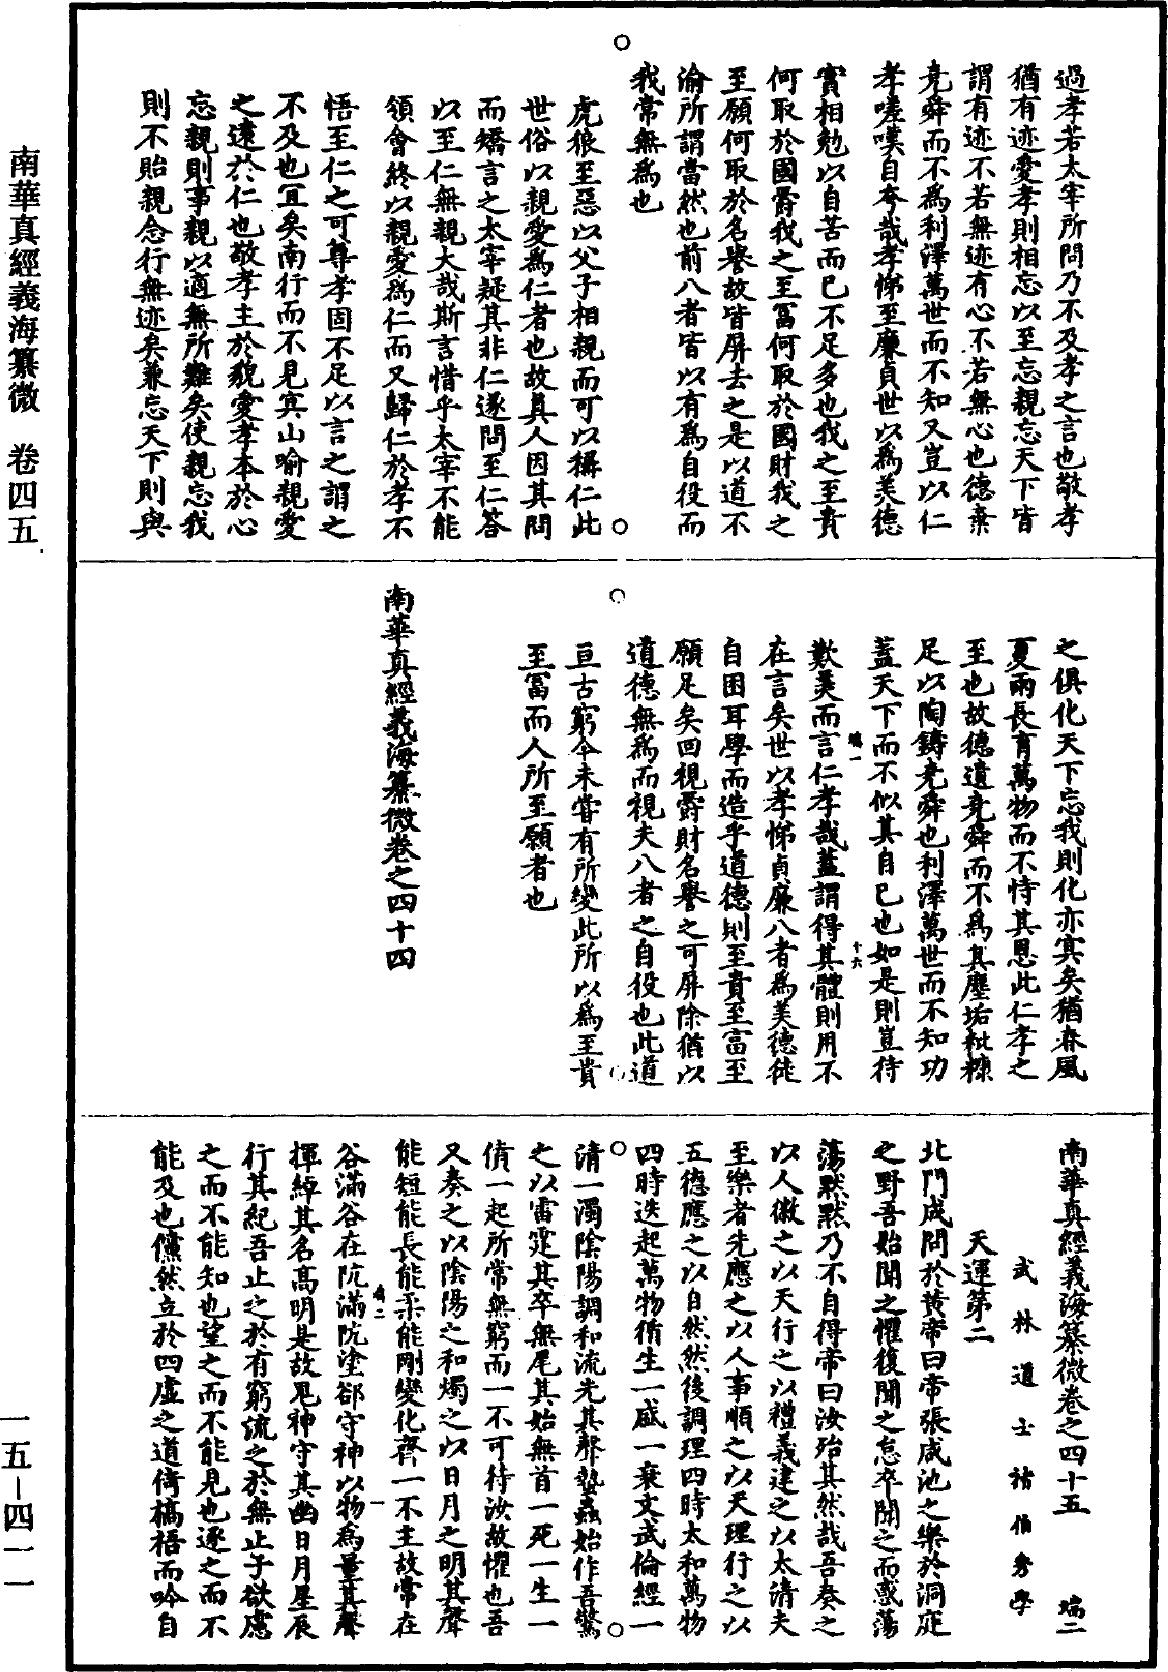 過孝若太宰所問乃不及孝之言也敬孝
猶有迹愛孝則相忘以至忘親忘天下皆
謂有迹不若無迹有心不若無心也德棄
堯舜而不為利澤萬世而不知又豈以仁
孝嗟嘆自夸哉孝悌至廉貞世以為美德
實相勉以自苦而已不足多也我之至貴
何取於國爵我之至富何取於國財我之
至願何取於名譽故皆屏去之是以道不
渝所謂當然也前八者皆以有為自役而
我常無為也
虎狼至惡以父子相親而可以稱仁此
世俗以親愛為仁者也故真人因其問
而矯言之太宰疑其非仁遂問至仁答
以至仁無親大哉斯言惜乎太宰不能
領會終以親愛為仁而又歸仁於孝不
悟至仁之可尊孝固不足以言之謂之
不及也宜矣南行而不見冥山喻親愛
之遠於仁也敬孝主於貌愛孝本於心
忘親則事親以適無所難矣使親忘我
則不貽親念行無迹矣兼忘天下則與
之俱化天下忘我則化亦冥矣猶春風
夏雨長育萬物而不恃其恩此仁孝之
至也故德遺堯舜而不為其塵垢粃糠
足以陶鑄堯舜也利澤萬世而不知功
蓋天下而不似其自已也如是則豈待
歎美而言仁孝哉蓋謂得其體則用不
在言矣世以孝悌貞廉八者為美德徒
自困耳學而造乎道德則至貴至富至
願足矣回視爵財名譽之可屏除猶以
道德無為而視夫八者之自役也此道
亘古窮今未嘗有所變此所以為至貴
至富而人所至願者也
南華真經義海纂微卷之四十四
南華真經義海纂微卷之四十五 端二
武林道士褚伯秀學
天運第二
北門成問於黃帝曰帝張咸池之樂於洞庭
之野吾始聞之懼復聞之怠卒聞之而惑蕩
蕩默默乃不自得帝曰汝殆其然哉吾奏之
以人徽之以天行之以禮義建之以太清夫
至樂者先應之以人事順之以天理行之以
五德應之以自然然後調理四時太和萬物
四時迭起萬物循生一盛一衰文武倫經一
清一濁陰陽調和流光其聲蟄蟲始作吾驚
之以雷霆其卒無尾其始無首一死一生一
僨一起所常無窮而一不可待汝故懼也吾
又奏之以陰陽之和燭之以日月之明其聲
能短能長能柔能剛變化齊一不主故常在
谷滿谷在阬滿阬塗郤守神以物為量其聲
揮綽其名高明是故鬼神守其幽日月星辰
行其紀吾止之於有窮流之於無止子欲慮
之而不能知也望之而不能見也逐之而不
能及也儻然立於四虛之道倚槁梧而吟自
南華真經義海纂微 卷四五
一五—四一一